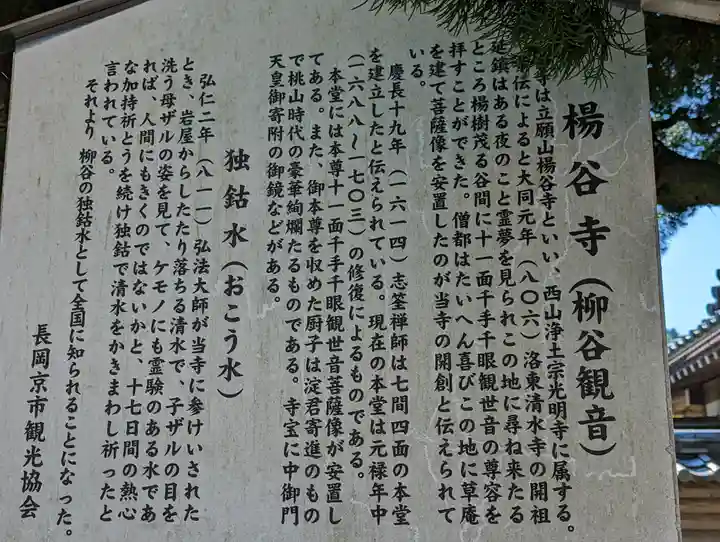 楊谷寺（柳谷観音）
寺は立願山楊谷寺といい、西山浄土宗光明寺に属する。
伝によると大同元年（八〇六）洛東清水寺の開祖
延鎮はある夜のこと霊夢を見られこの地に尋ね来たる
ところ楊樹茂る谷間に十一面千手千眼観世音の尊容を
拝すことができた。僧都はたいへん喜びこの地に草庵
を建て菩薩像を安置したのが当寺の開創と伝えられて
いる。
慶長十九年（一六一四）志筌禅師は七間四面の本堂
を建立したと伝えられている。現在の本堂は元禄年中
（一六八八〜一七〇三）の修復によるものである。
本堂には本尊十一面千手千眼観世音菩薩像が安置し
てある。また、御本尊を収めた厨子は淀君寄進のもの
で桃山時代の豪華絢爛たるものである。寺宝に中御門
天皇御寄附の御鏡などがある。
独鈷水（おこう水）
弘仁二年（八一一）弘法大師が当寺に参けいされた
とき、岩屋からしたたり落ちる清水で、子ザルの目を
洗う母ザルの姿を見て、ケモノにも霊験のある水であ
れば、人間にもきくのではないかと、十七日間の熱心
な加持祈とうを続け独鈷で清水をかきまわし祈ったと
言われている。
それより 柳谷の独鈷水として全国に知られることになった。
長岡京市観光協会